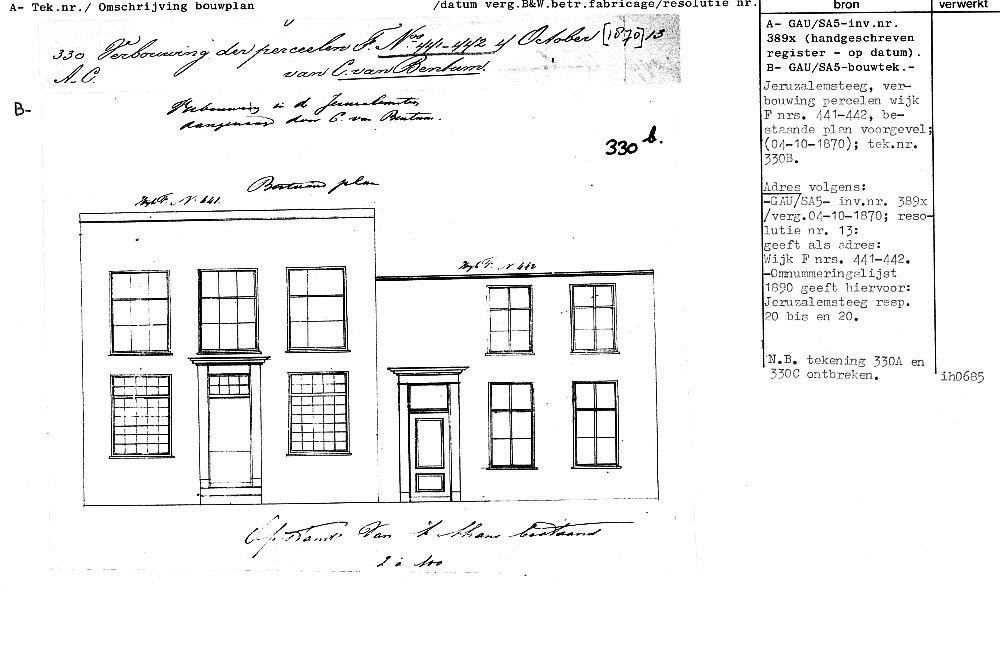 A- Tek.nr./ Omschrijving bouwplan /datum verg.B&W.betr.fabricage/resolutie nr.
bron
verwerkt
330 Verbouwing der perceelen F. Nos 441-442 4 October [1870] 13
A.C. van C. van Bentum.
B-
Verbouwing in de Jeruzalemsteeg
aangevraagd door C. van Bentum.
330 b.
Bestaand plan
Wijk F. N. 441.
Wijk F. N. 442
Opstand van 't thans bestaand
2 à 100
A- GAU/SA5-inv.nr.
389x (handgeschreven
register - op datum).
B- GAU/SA5-bouwtek.-
Jeruzalemsteeg, ver-
bouwing percelen wijk
F nrs. 441-442, be-
staande plan voorgevel;
(04-10-1870); tek.nr.
330B.
Adres volgens:
-GAU/SA5- inv.nr. 389x
/verg.04-10-1870; reso-
lutie nr. 13:
geeft als adres:
Wijk F nrs. 441-442.
-Omnummeringslijst
1890 geeft hiervoor:
Jeruzalemsteeg resp.
20 bis en 20.
N.B. tekening 330A en
330C ontbreken.
ih0685